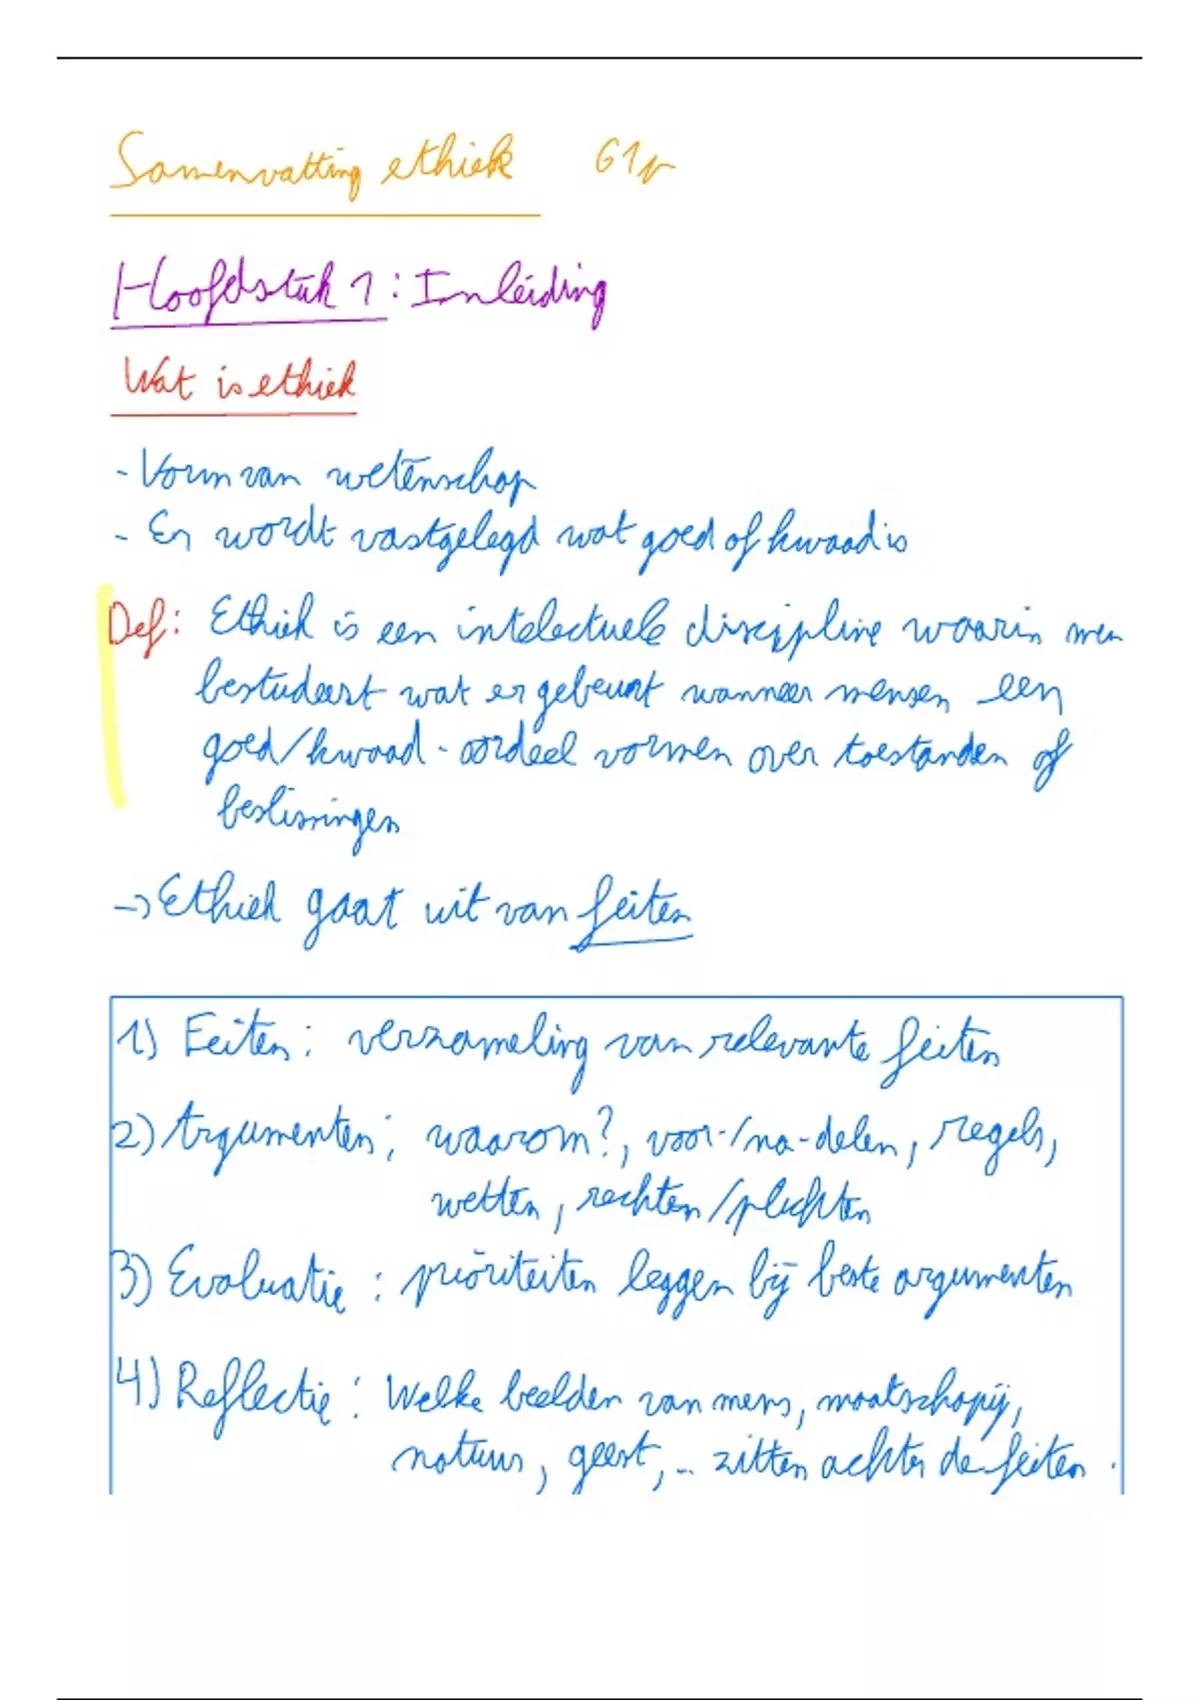 Samenvatting ethiek 61p
Hoofdstuk 1: Inleiding
Wat is ethiek
- Vorm van wetenschap
- Er wordt vastgelegd wat goed of kwaad is
Def: Ethiek is een intelectuele discipline waarin men
bestudeert wat er gebeurt wanneer mensen een
goed/kwaad-oordeel vormen over toestanden of
beslissingen
→ Ethiek gaat uit van feiten
1) Feiten: verzameling van relevante feiten
2) Argumenten: waarom?, voor-/na-delen, regels,
wetten, rechten/plichten
3) Evaluatie: prioriteiten leggen bij beste argumenten
4) Reflectie: Welke beelden van mens, maatschapij,
natuur, geest, .. zitten achter de feiten.